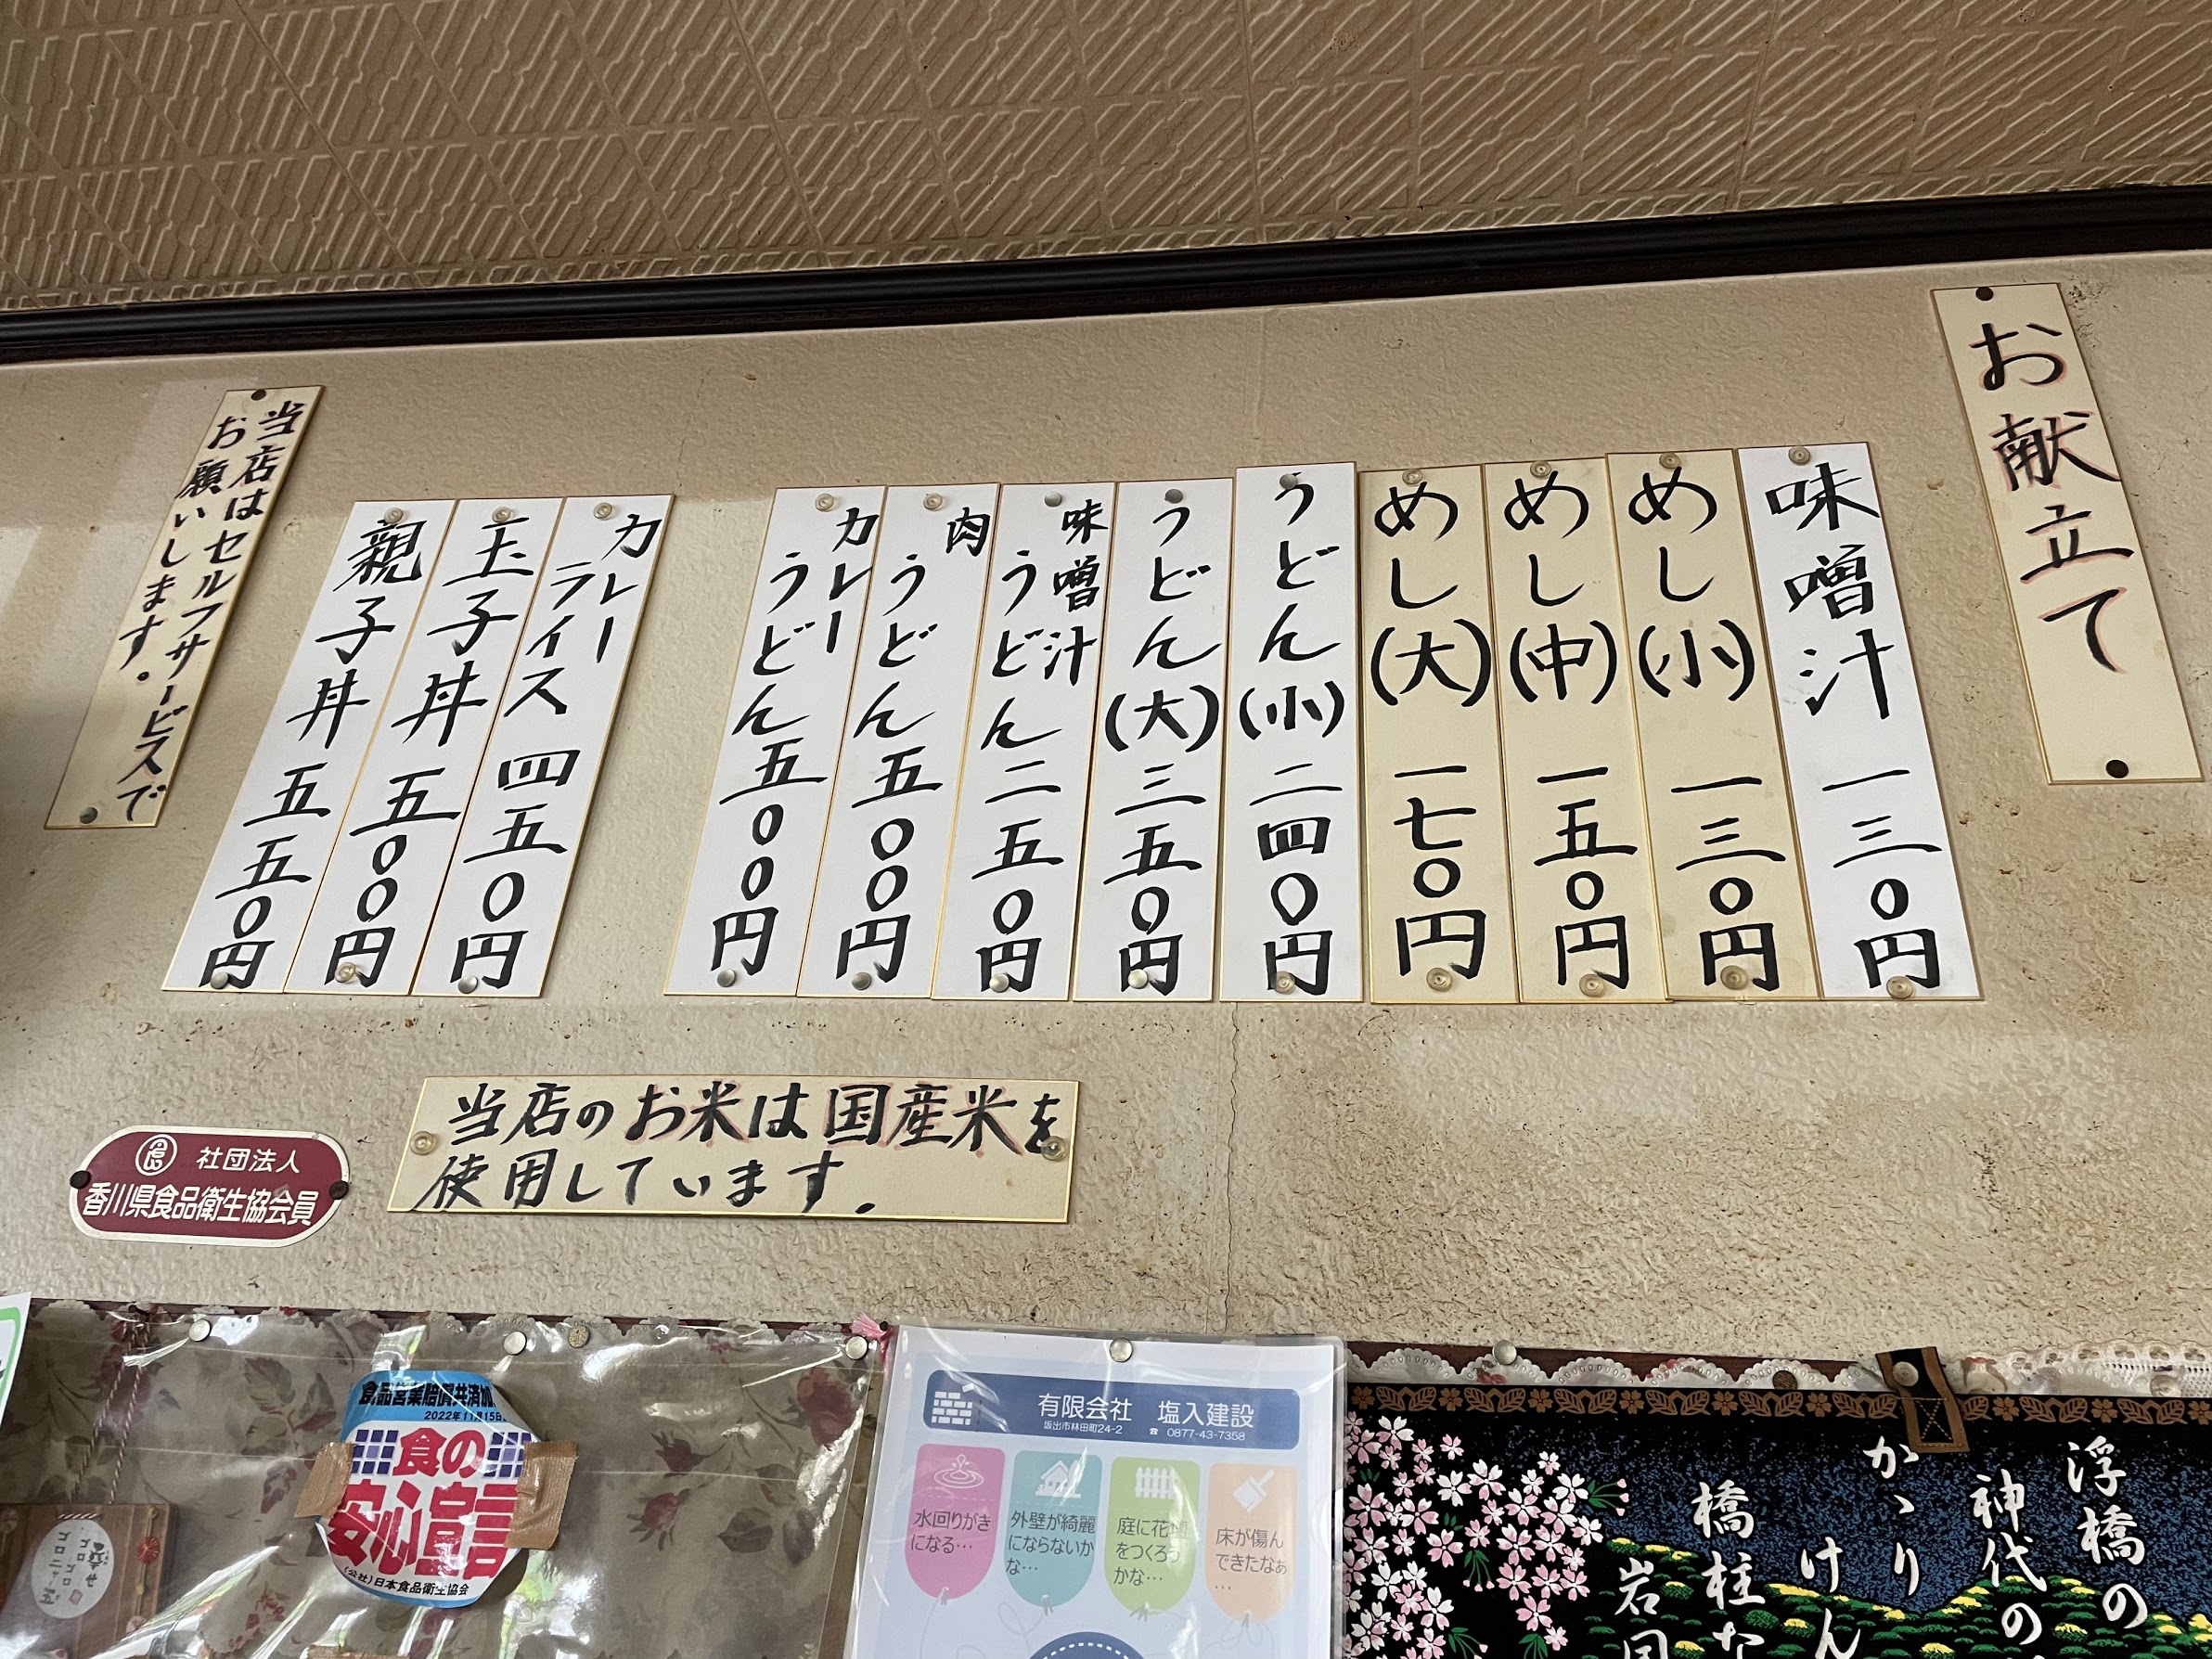 お献立て
味噌汁 一三〇円
めし(小) 一三〇円
めし(中) 一五〇円
めし(大) 一七〇円
うどん(小) 二四〇円
うどん(大) 三五〇円
味噌汁
うどん 二五〇円
肉
うどん 五〇〇円
カレー
うどん 五〇〇円
カレー
ライス 四五〇円
玉子丼 五〇〇円
親子丼 五五〇円
当店はセルフサービスで
お願いします.
当店のお米は国産米を
使用しています.
社団法人
香川県食品衛生協会会員
食品営業賠償共済加
2022年11月15日
食の
安心宣言
(公社)日本食品衛生協会
有限会社 塩入建設
坂出市林田町24-2 ☎ 0877-43-7358
水回りがき
になる…
外壁が綺麗
にならないか
な…
庭に花壇
をつくろう
かな…
床が傷ん
できたなぁ
…
浮橋の
神代の
かゝり
けん
橋柱な
岩